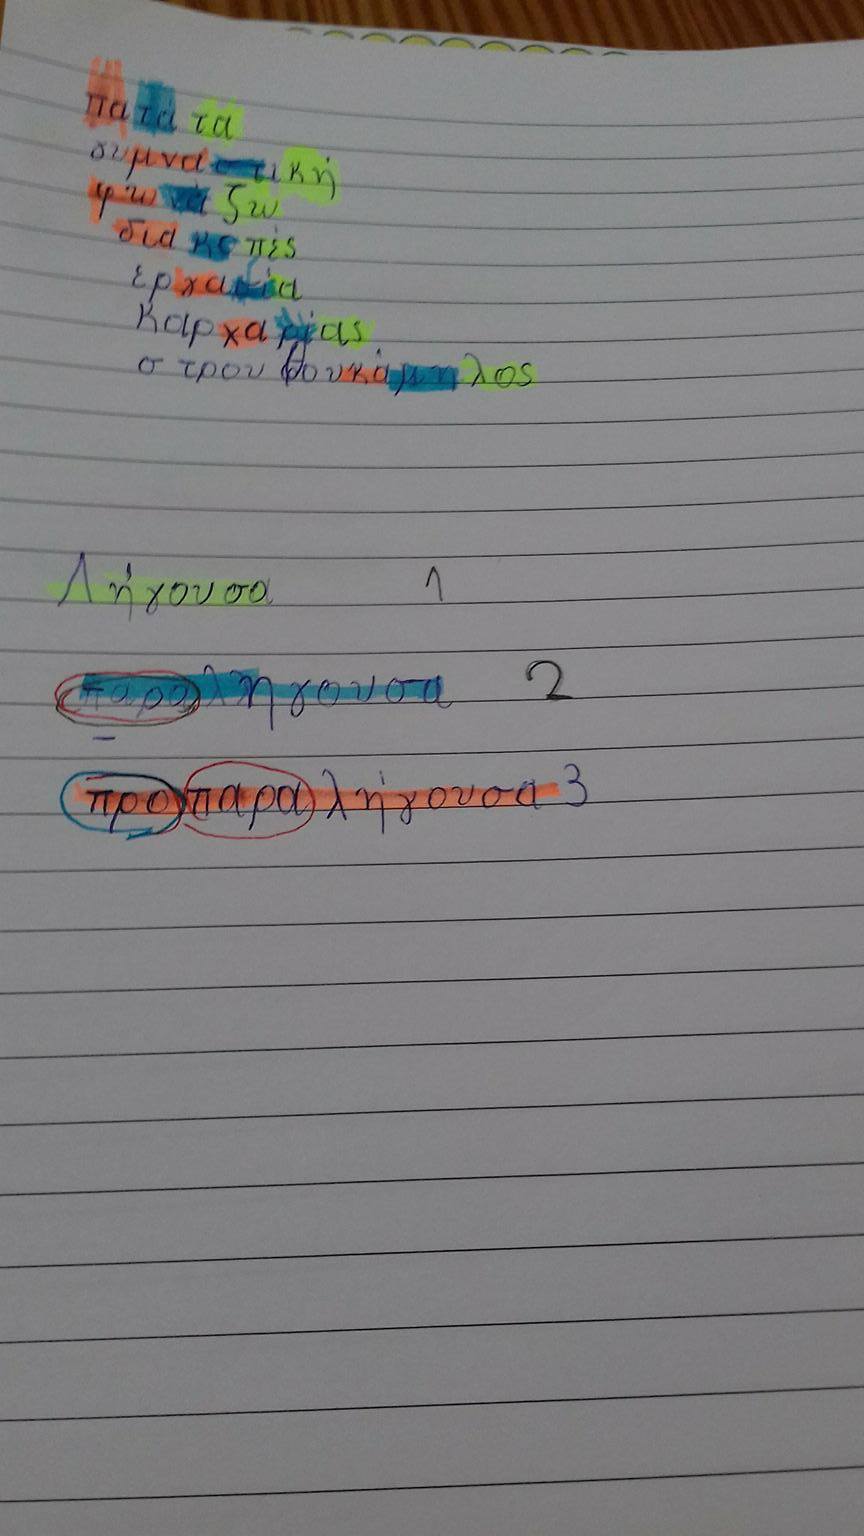 πα τά τα
γυμνα στι κή
φω νά ζω
δια κο πές
καρχα ρίας
στρου θουκάμηλος
Λήγουσα 1
παραλήγουσα 2
προπαραλήγουσα 3